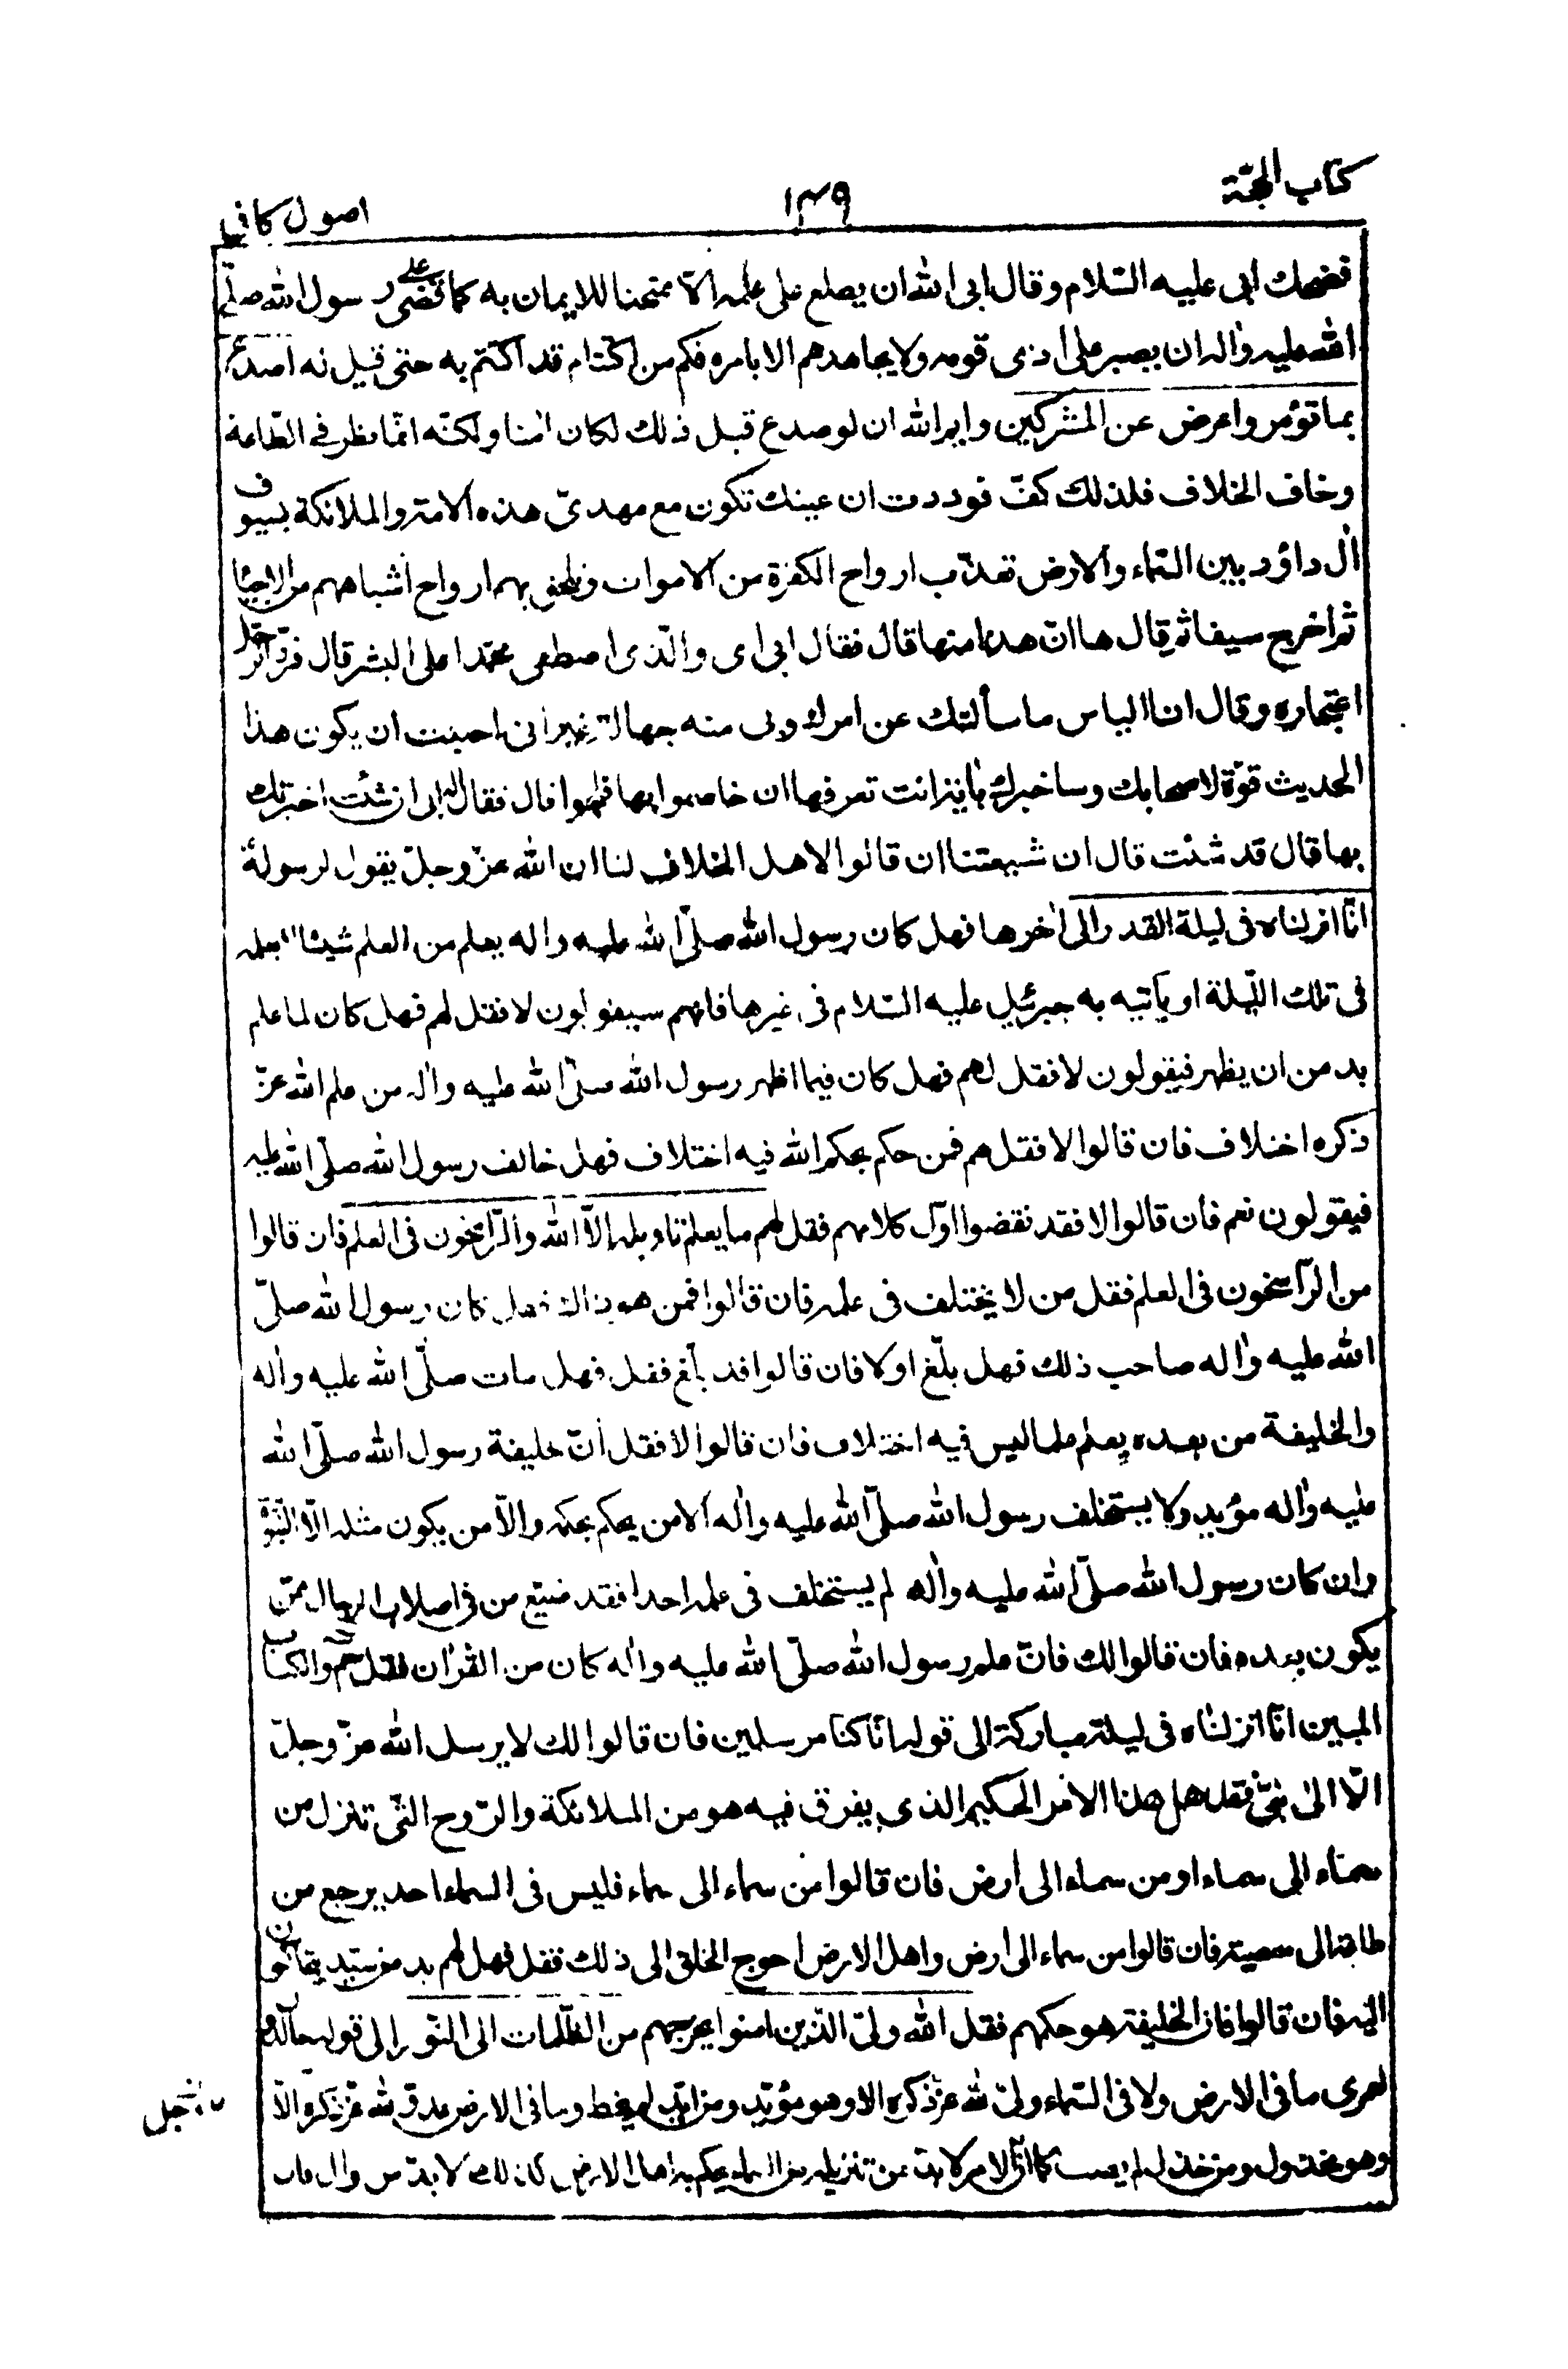 كتاب الحجّة
١٣٩
اصول كافى
فضحك ابى عليه السّلام وقال ابى الله ان يطلع على علمه الّا ممتحنا للايمان به كما قضى على رسول الله صلّى
الله عليه واله ان يصبر على اذى قومه ولا يجاهدهم الا بامره فكم من اكتتام قد اكتتم به حتى قيل له اصدع
بما تؤمر واعرض عن المشركين وايم الله ان لو صدع قبل ذلك لكان امنا ولكنّه انّما نظر فى الطّاعة
وخاف الخلاف فلذلك كفّ فوددت ان عينك تكون مع مهدىّ هذه الامّة والملائكة بسيوف
ال داؤد بين السّماء والارض تعذّب ارواح الكفرة من الاموات وتلحق بهم ارواح اشباههم من الاحياء
ثم اخرج سيفا ثم قال ها انّ هذا منها قال فقال ابى اى والّذى اصطفى محمّدا على البشر قال فردّ الرّجل
اعتجاره وقال انا الياس ما سألتك عن امرك وبى منه جهالة غير انى احببت ان يكون هذا
الحديث قوّة لاصحابك وساخبرك باية انت تعرفها ان خاصموا بها فلجوا قال فقال له ابى ان شئت اخبرتك
بها قال قد شئت قال ان شيعتنا ان قالوا لاهل الخلاف لنا ان الله عزّ وجلّ يقول لرسوله
انّا انزلناه فى ليلة القدر الى اخرها فهل كان رسول الله صلّى الله عليه واله يعلم من العلم شيئا لا يعلمه
فى تلك اللّيلة او يأتيه به جبرئيل عليه السّلام فى غيرها فانهم سيقولون لا فقل لهم فهل كان لما علم
بد من ان يظهر فيقولون لا فقل لهم فهل كان فيما اظهر رسول الله صلّى الله عليه واله من علم الله عزّ
ذكره اختلاف فان قالوا لا فقل لهم فمن حكم بحكم الله فيه اختلاف فهل خالف رسول الله صلّى الله عليه
فيقولون نعم فان قالوا لا فقد نقضوا اوّل كلامهم فقل لهم ما يعلم تاويله الّا الله والرّاسخون فى العلم فان قالوا
من الرّاسخون فى العلم فقل من لا يختلف فى علمه فان قالوا فمن هو ذاك فقل كان رسول الله صلّى
الله عليه واله صاحب ذلك فهل بلّغ او لا فان قالوا قد بلّغ فقل فهل مات صلّى الله عليه واله
والخليفة من بعده يعلم علما ليس فيه اختلاف فان قالوا لا فقل انّ خليفة رسول الله صلّى الله
عليه واله مؤيد ولا يستخلف رسول الله صلّى الله عليه واله الا من يحكم بحكمه والّا من يكون مثله الّا النّبوّة
وان كان رسول الله صلّى الله عليه واله لم يستخلف فى علمه احدا فقد ضيّع من فى اصلاب الرجال ممّن
يكون بعده فان قالوا لك فانّ علم رسول الله صلّى الله عليه واله كان من القران فقل حم والكتاب
المبين انّا انزلناه فى ليلة مباركة الى قوله انّا كنا مرسلين فان قالوا لك لا يرسل الله عزّ وجلّ
الّا الى نبىّ فقل هل هذا الامر الحكيم الذى يفرق فيه هو من الملائكة والرّوح الّتى تنزل من
سماء الى سماء او من سماء الى ارض فان قالوا من سماء الى سماء فليس فى السماء احد يرجع من
طاعة الى معصية فان قالوا من سماء الى ارض واهل الارض احوج الخلق الى ذلك فقل فهل لهم بد من سيّد يتحاكمون
اليه فان قالوا فان الخليفة هو حكمهم فقل الله ولىّ الّذين امنوا يخرجهم من الظّلمات الى النّور الى قوله خالدون
لعمرى ما فى الارض ولا فى السّماء ولىّ لله عزّ ذكره الا وهو مؤيّد ومن ايّد لم يخط وما فى الارض عدوّ لله عزّ ذكره الّا
وهو مخذول ومن خذل لم يصب كما انّ الامر لا بدّ من تنزيله من السماء يحكم به اهل الارض كذلك لا بدّ من وال فان